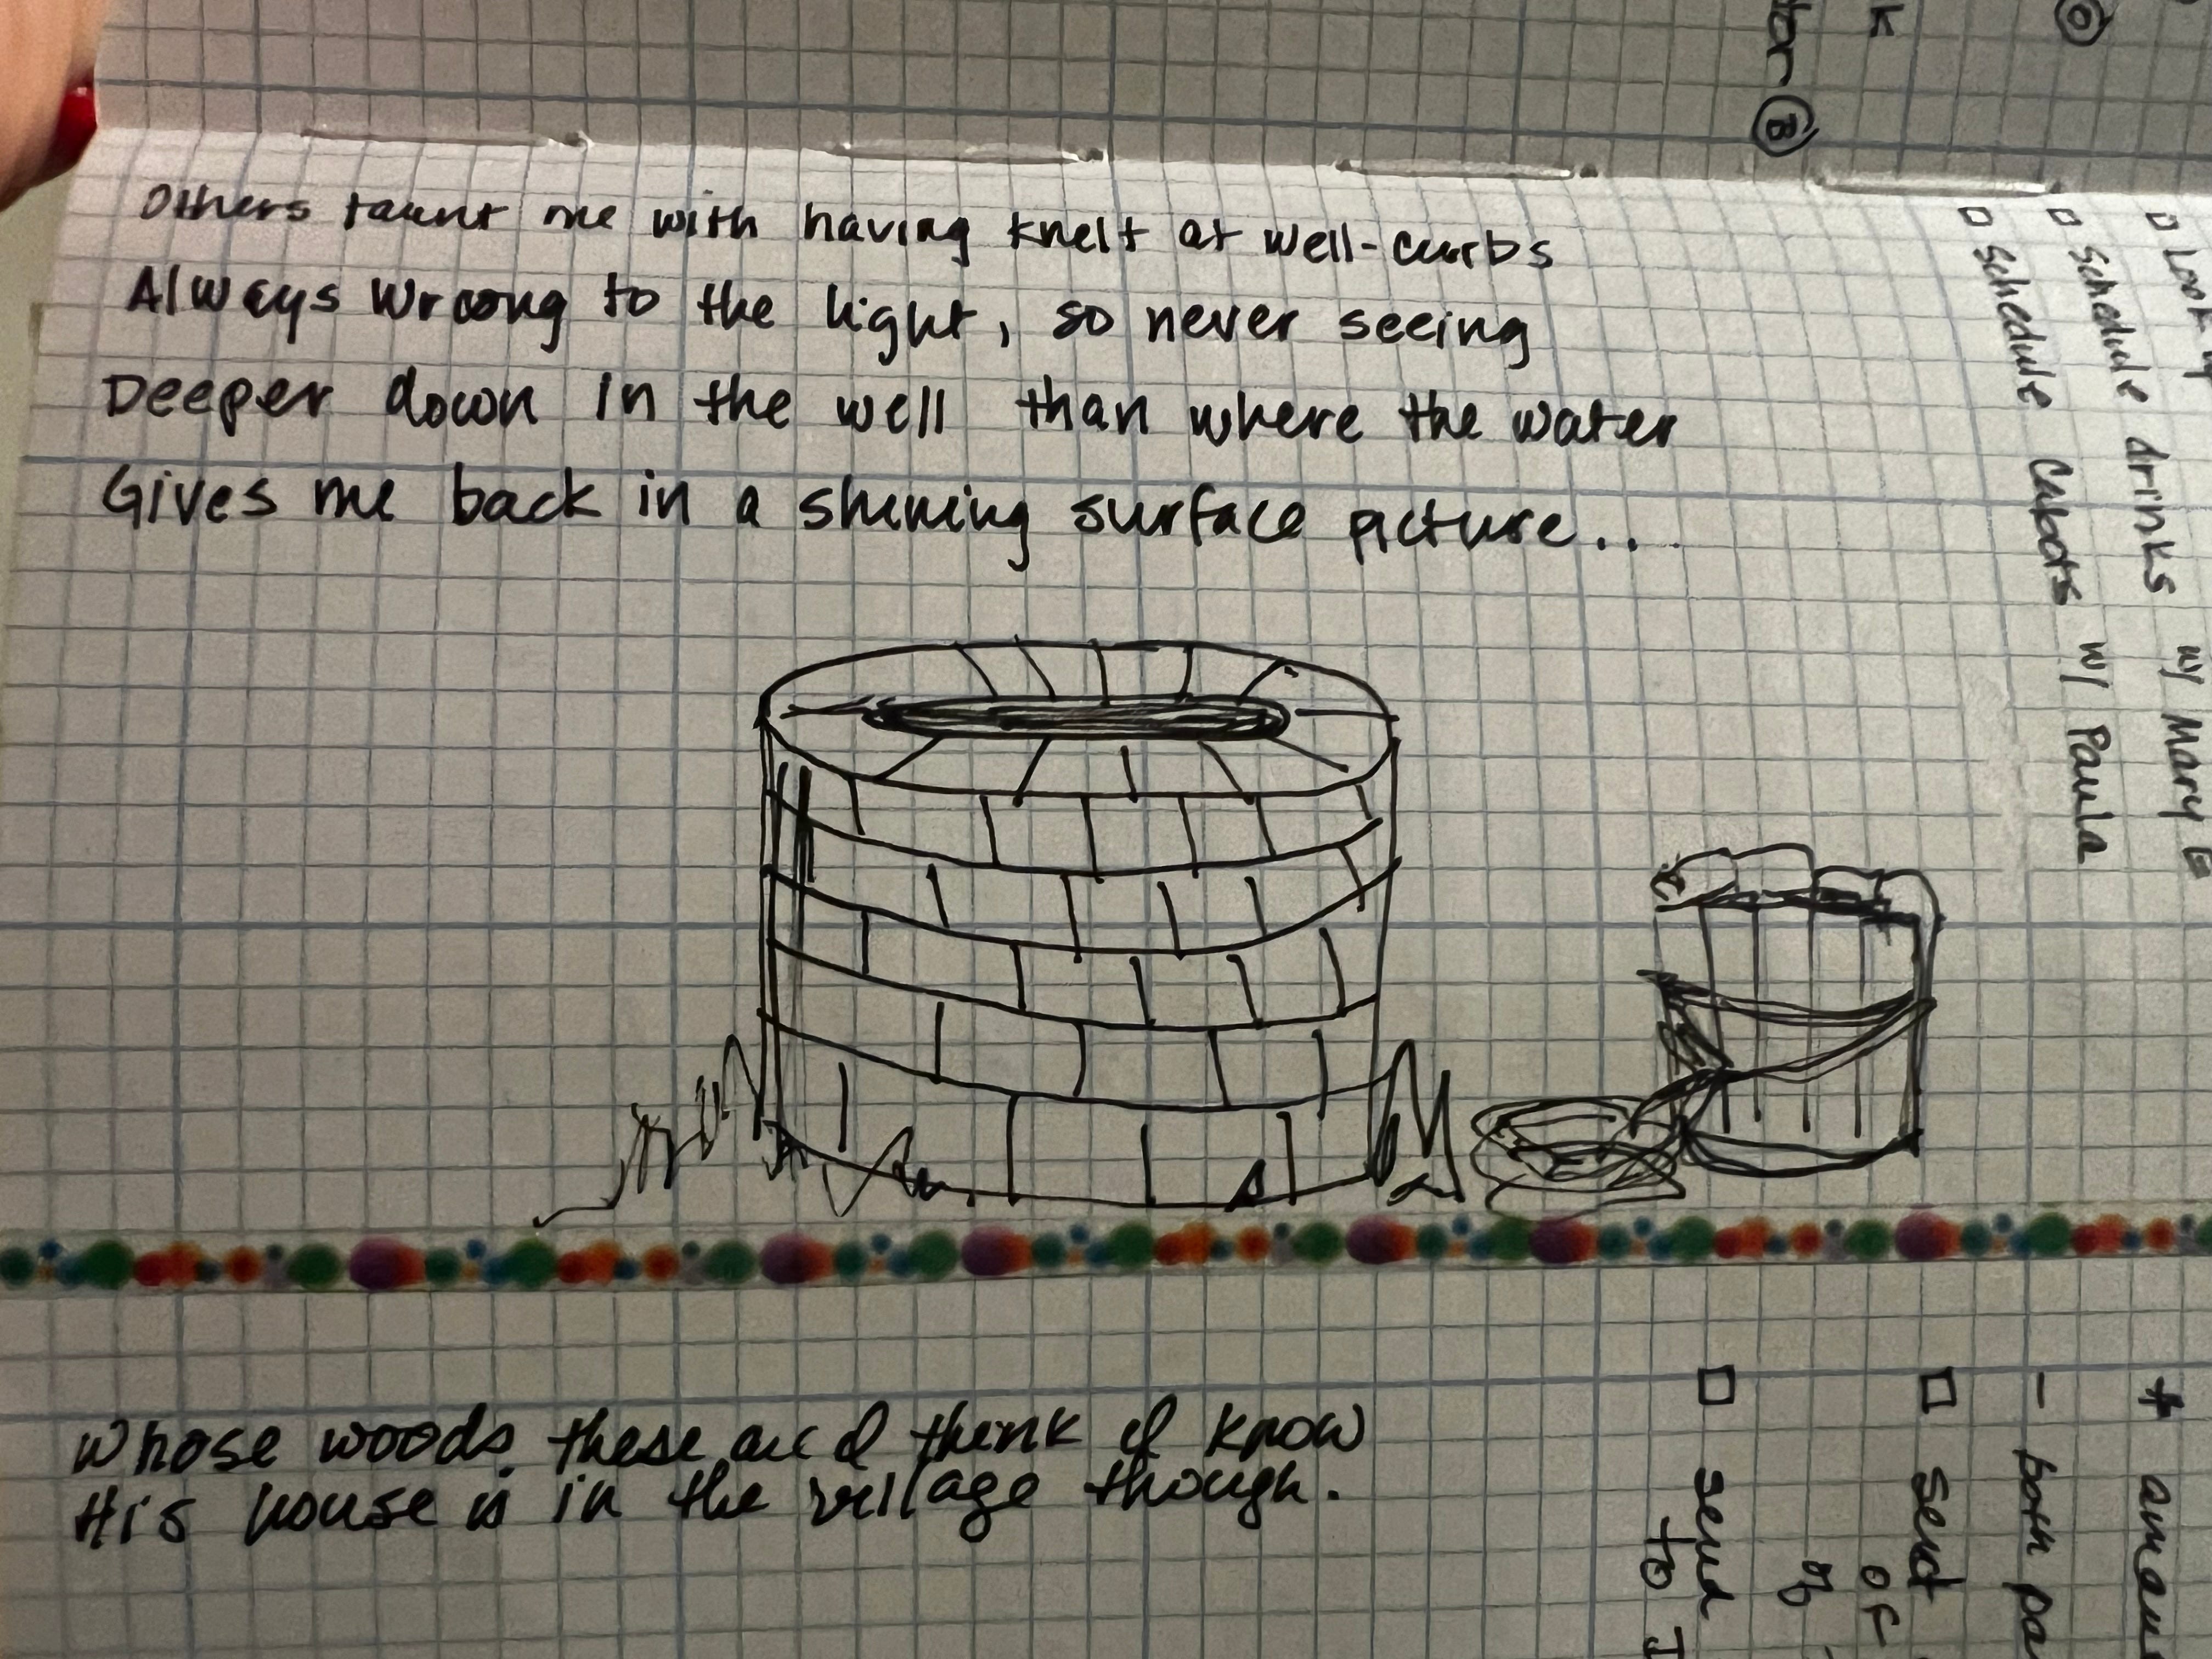 Others taunt me with having knelt at well-curbs
Always wrong to the light, so never seeing
Deeper down in the well than where the water
Gives me back in a shining surface picture...
Whose woods these are I think I know
His house is in the village though.
k
B
Schedule drinks w/ Mary E
Schedule Cabots w/ Paula
both
sent
of
send
to